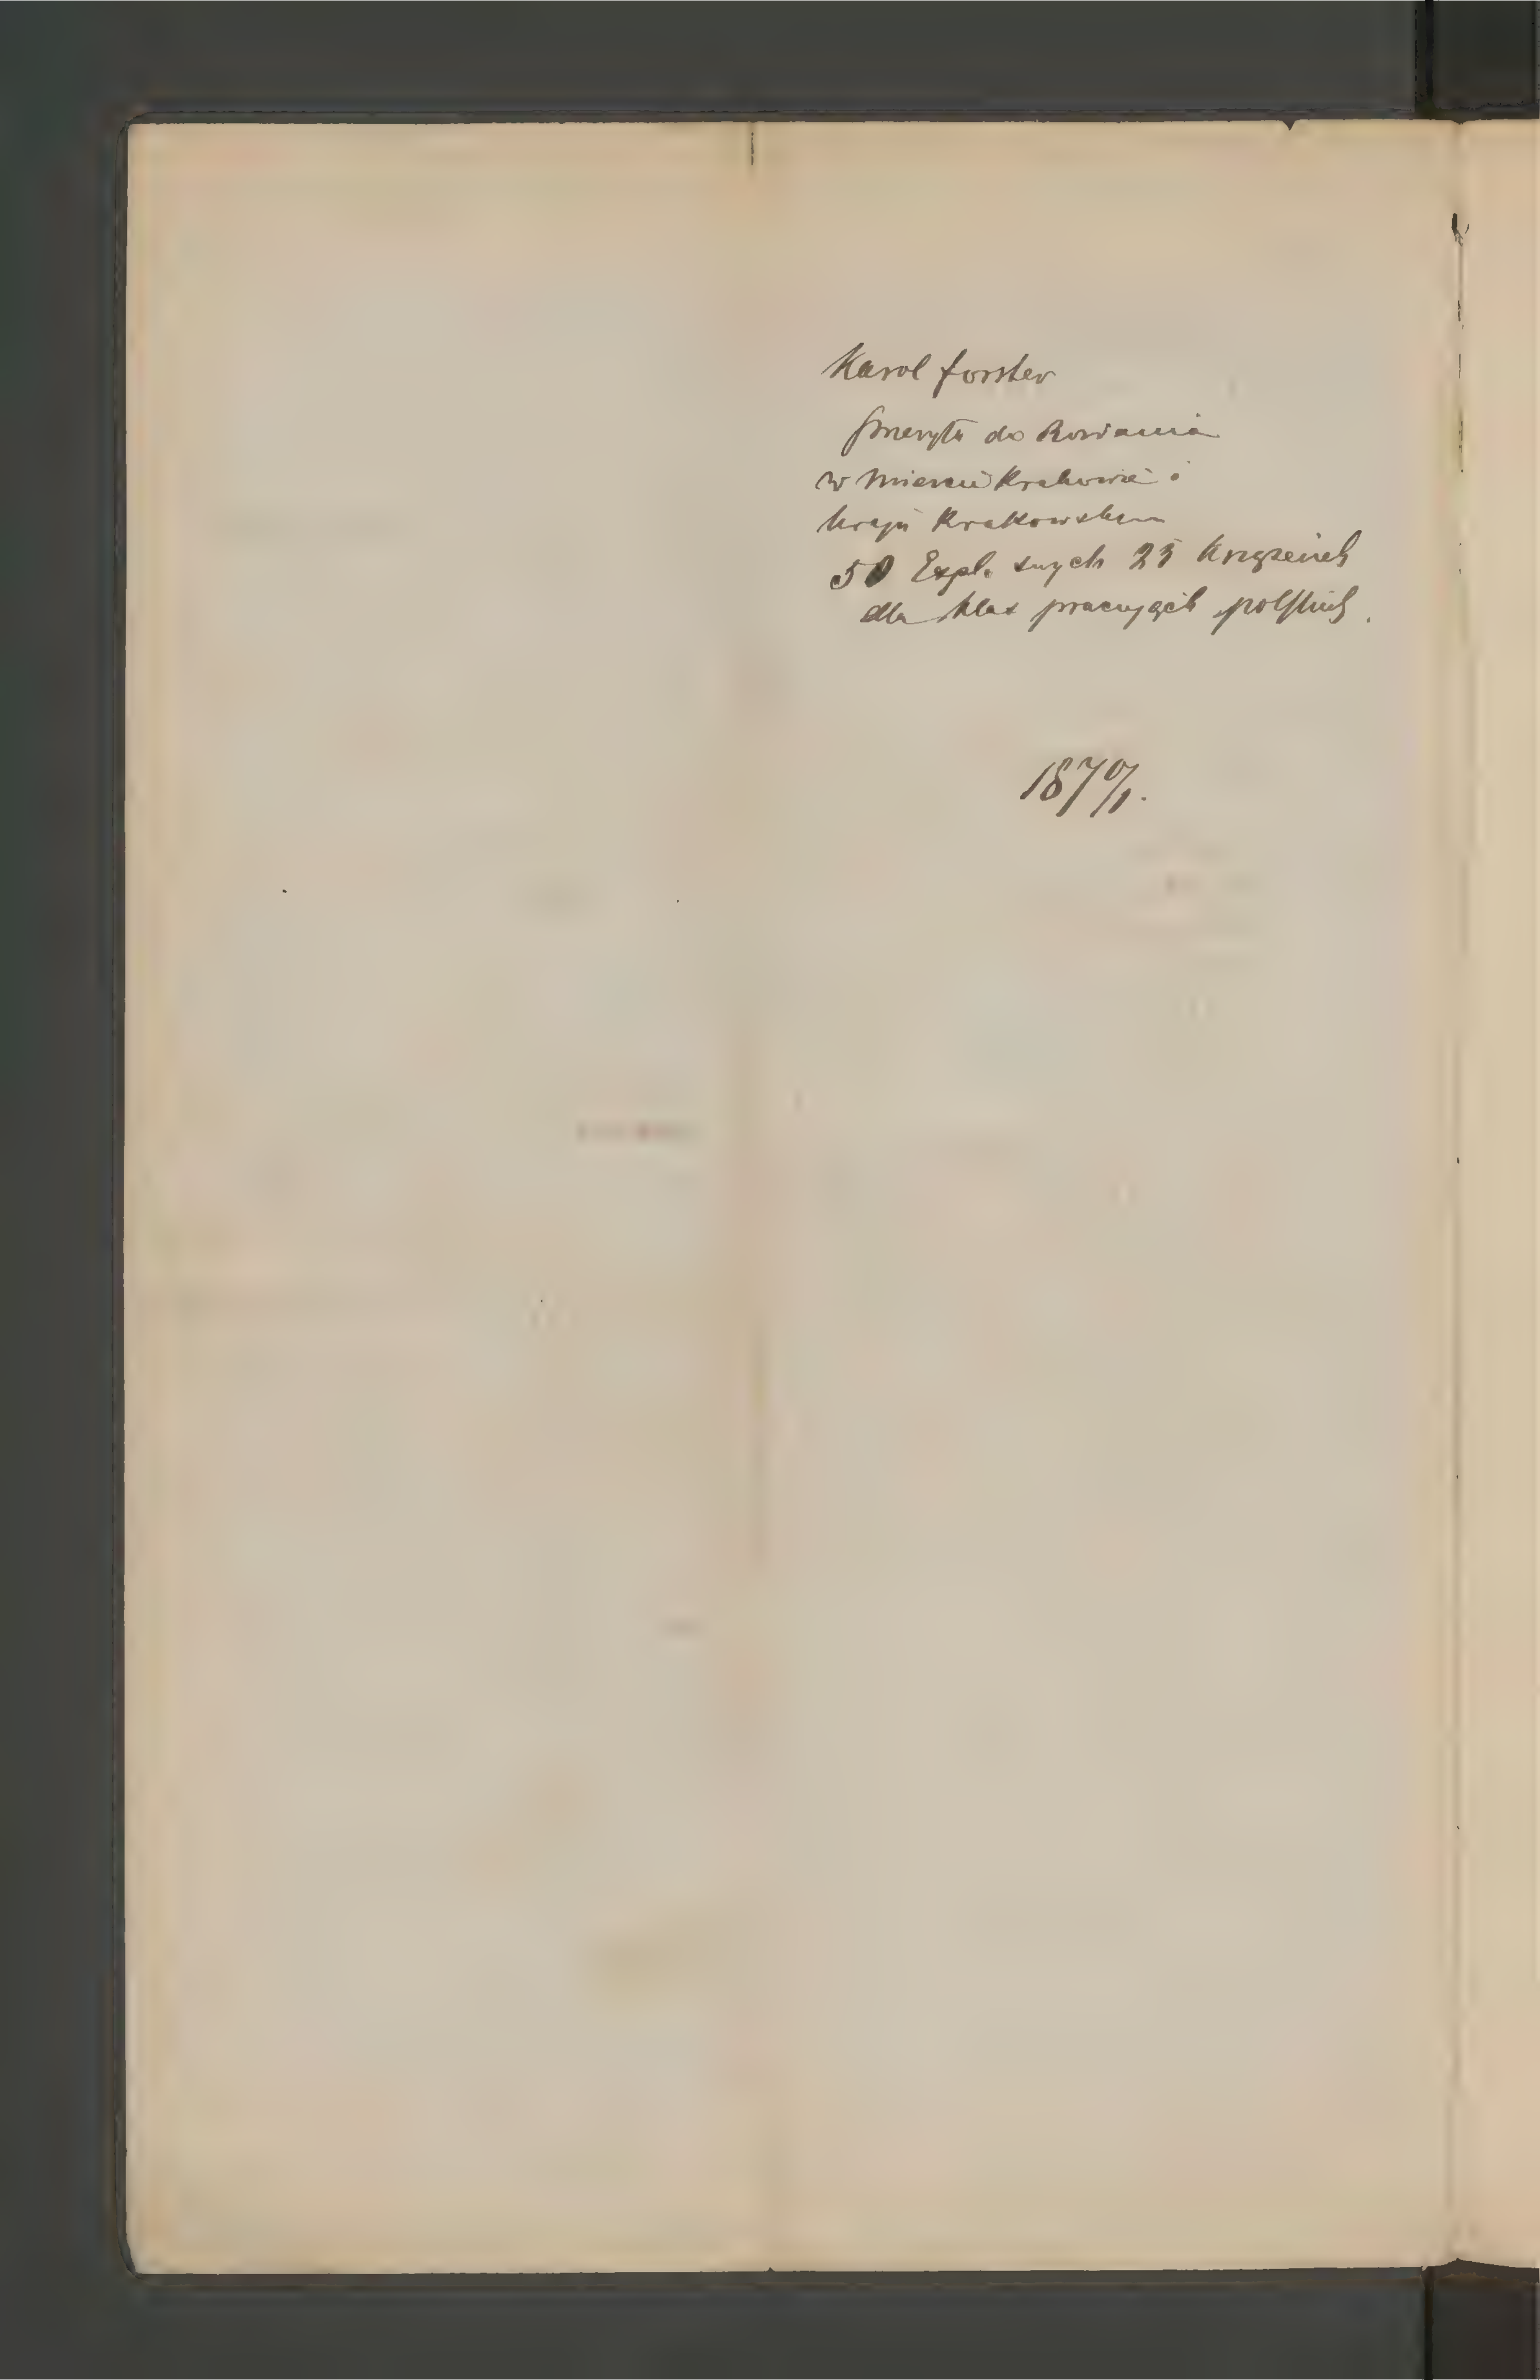 Karol Forster
do
w mieście Krakowie i
kraju Krakowskim
50 Expl. swych 25 książeczek
dla klas pracujących polskich.
1870/1.